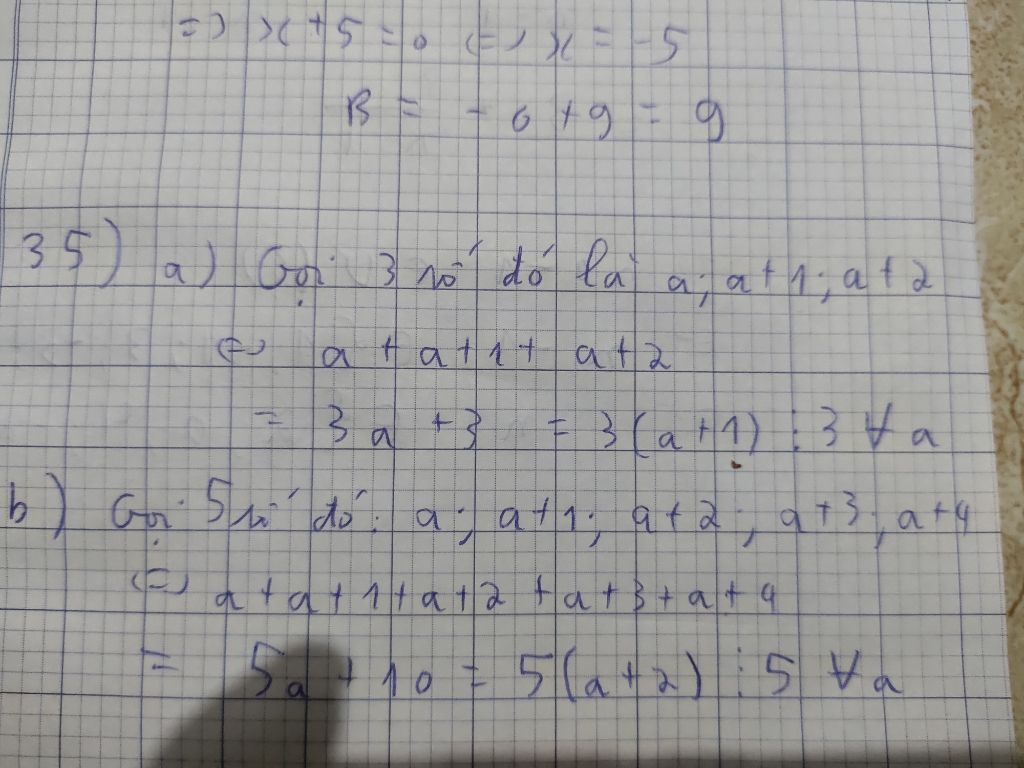 => x + 5 = 0 <=> x = -5
B = - 0 + 9 = 9
35) a) Gọi 3 số đó là a; a+1; a+2
<=> a + a + 1 + a + 2
= 3a + 3 = 3(a+1) ⋮ 3 ∀ a
b) Gọi 5 số đó: a; a+1; a+2; a+3; a+4
<=> a + a + 1 + a + 2 + a + 3 + a + 4
= 5a + 10 = 5(a+2) ⋮ 5 ∀ a